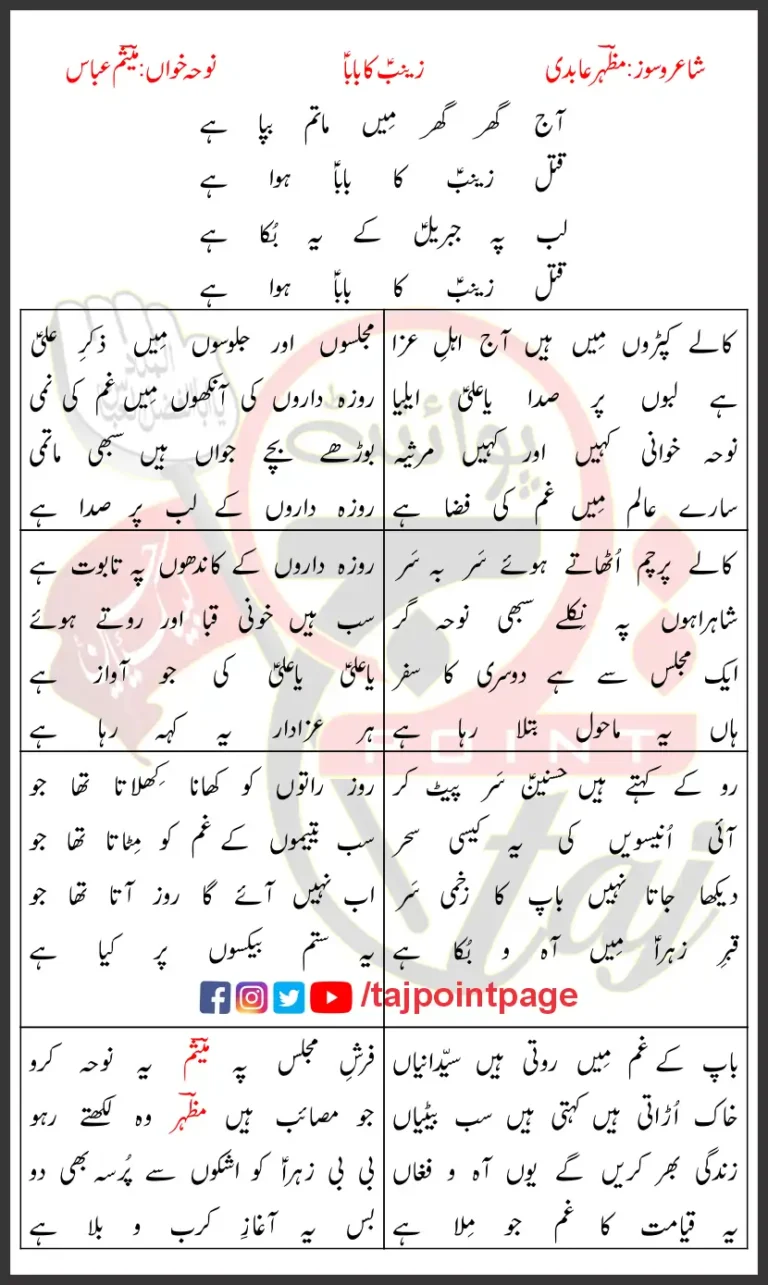 شاعر و سوز: مظہرؔ عابدی
زینبؑ کا باباؑ
نوحہ خواں: میثمؔ عباس
آج گھر گھر مِیں ماتم بپا ہے
قتل زینبؑ کا باباؑ ہوا ہے
لب پہ جبریلؑ کے یہ بُکا ہے
قتل زینبؑ کا باباؑ ہوا ہے
کالے کپڑوں مِیں ہیں آج اہلِ عزا
ہے لبوں پر صدا یاعلیؑ ایلیا
نوحہ خوانی کہیں اور کہیں مرثیہ
سارے عالم مِیں غم کی فضا ہے
مجلسوں اور جلوسوں مِیں ذکرِ علیؑ
روزہ داروں کی آنکھوں مِیں غم کی نمی
بوڑھے بچے جواں ہیں سبھی ماتمی
روزہ داروں کے لب پر صدا ہے
کالے پرچم اُٹھاتے ہوئے سَر بہ سَر
شاہراہوں پہ نِکلے سبھی نوحہ گر
ایک مجلس سے ہے دوسری کا سفر
ہاں یہ ماحول بتلا رہا ہے
روزہ داروں کے کاندھوں پہ تابوت ہے
سب ہیں خونی قبا اور روتے ہوئے
یاعلیؑ یاعلیؑ کی جو آواز ہے
ہر عزادار یہ کہہ رہا ہے
رو کے کہتے ہیں حسنینؑ سَر پیٹ کر
آئی اُنیسویں کی یہ کیسی سحر
دیکھا جاتا نہیں باپ کا زخمی سَر
قبرِ زہراؑ مِیں آہ و بُکا ہے
روز راتوں کو کھانا کِھلاتا تھا جو
سب یتیموں کے غم کو مِٹاتا تھا جو
اب نہیں آئے گا روز آتا تھا جو
یہ ستم بیکسوں پر کیا ہے
/tajpointpage
باپ کے غم مِیں روتی ہیں سیّدانیاں
خاک اُڑاتی ہیں کہتی ہیں سب بیٹیاں
زندگی بھر کریں گے یوں آہ و فغاں
یہ قیامت کا غم جو مِلا ہے
فرشِ مجلس پہ میثمؔ یہ نوحہ کرو
جو مصائب ہیں مظہرؔ وہ لکھتے رہو
بی بی زہراؑ کو اشکوں سے پُرسہ بھی دو
بس یہ آغازِ کرب و بلا ہے
پوائنٹ
POINT
taj